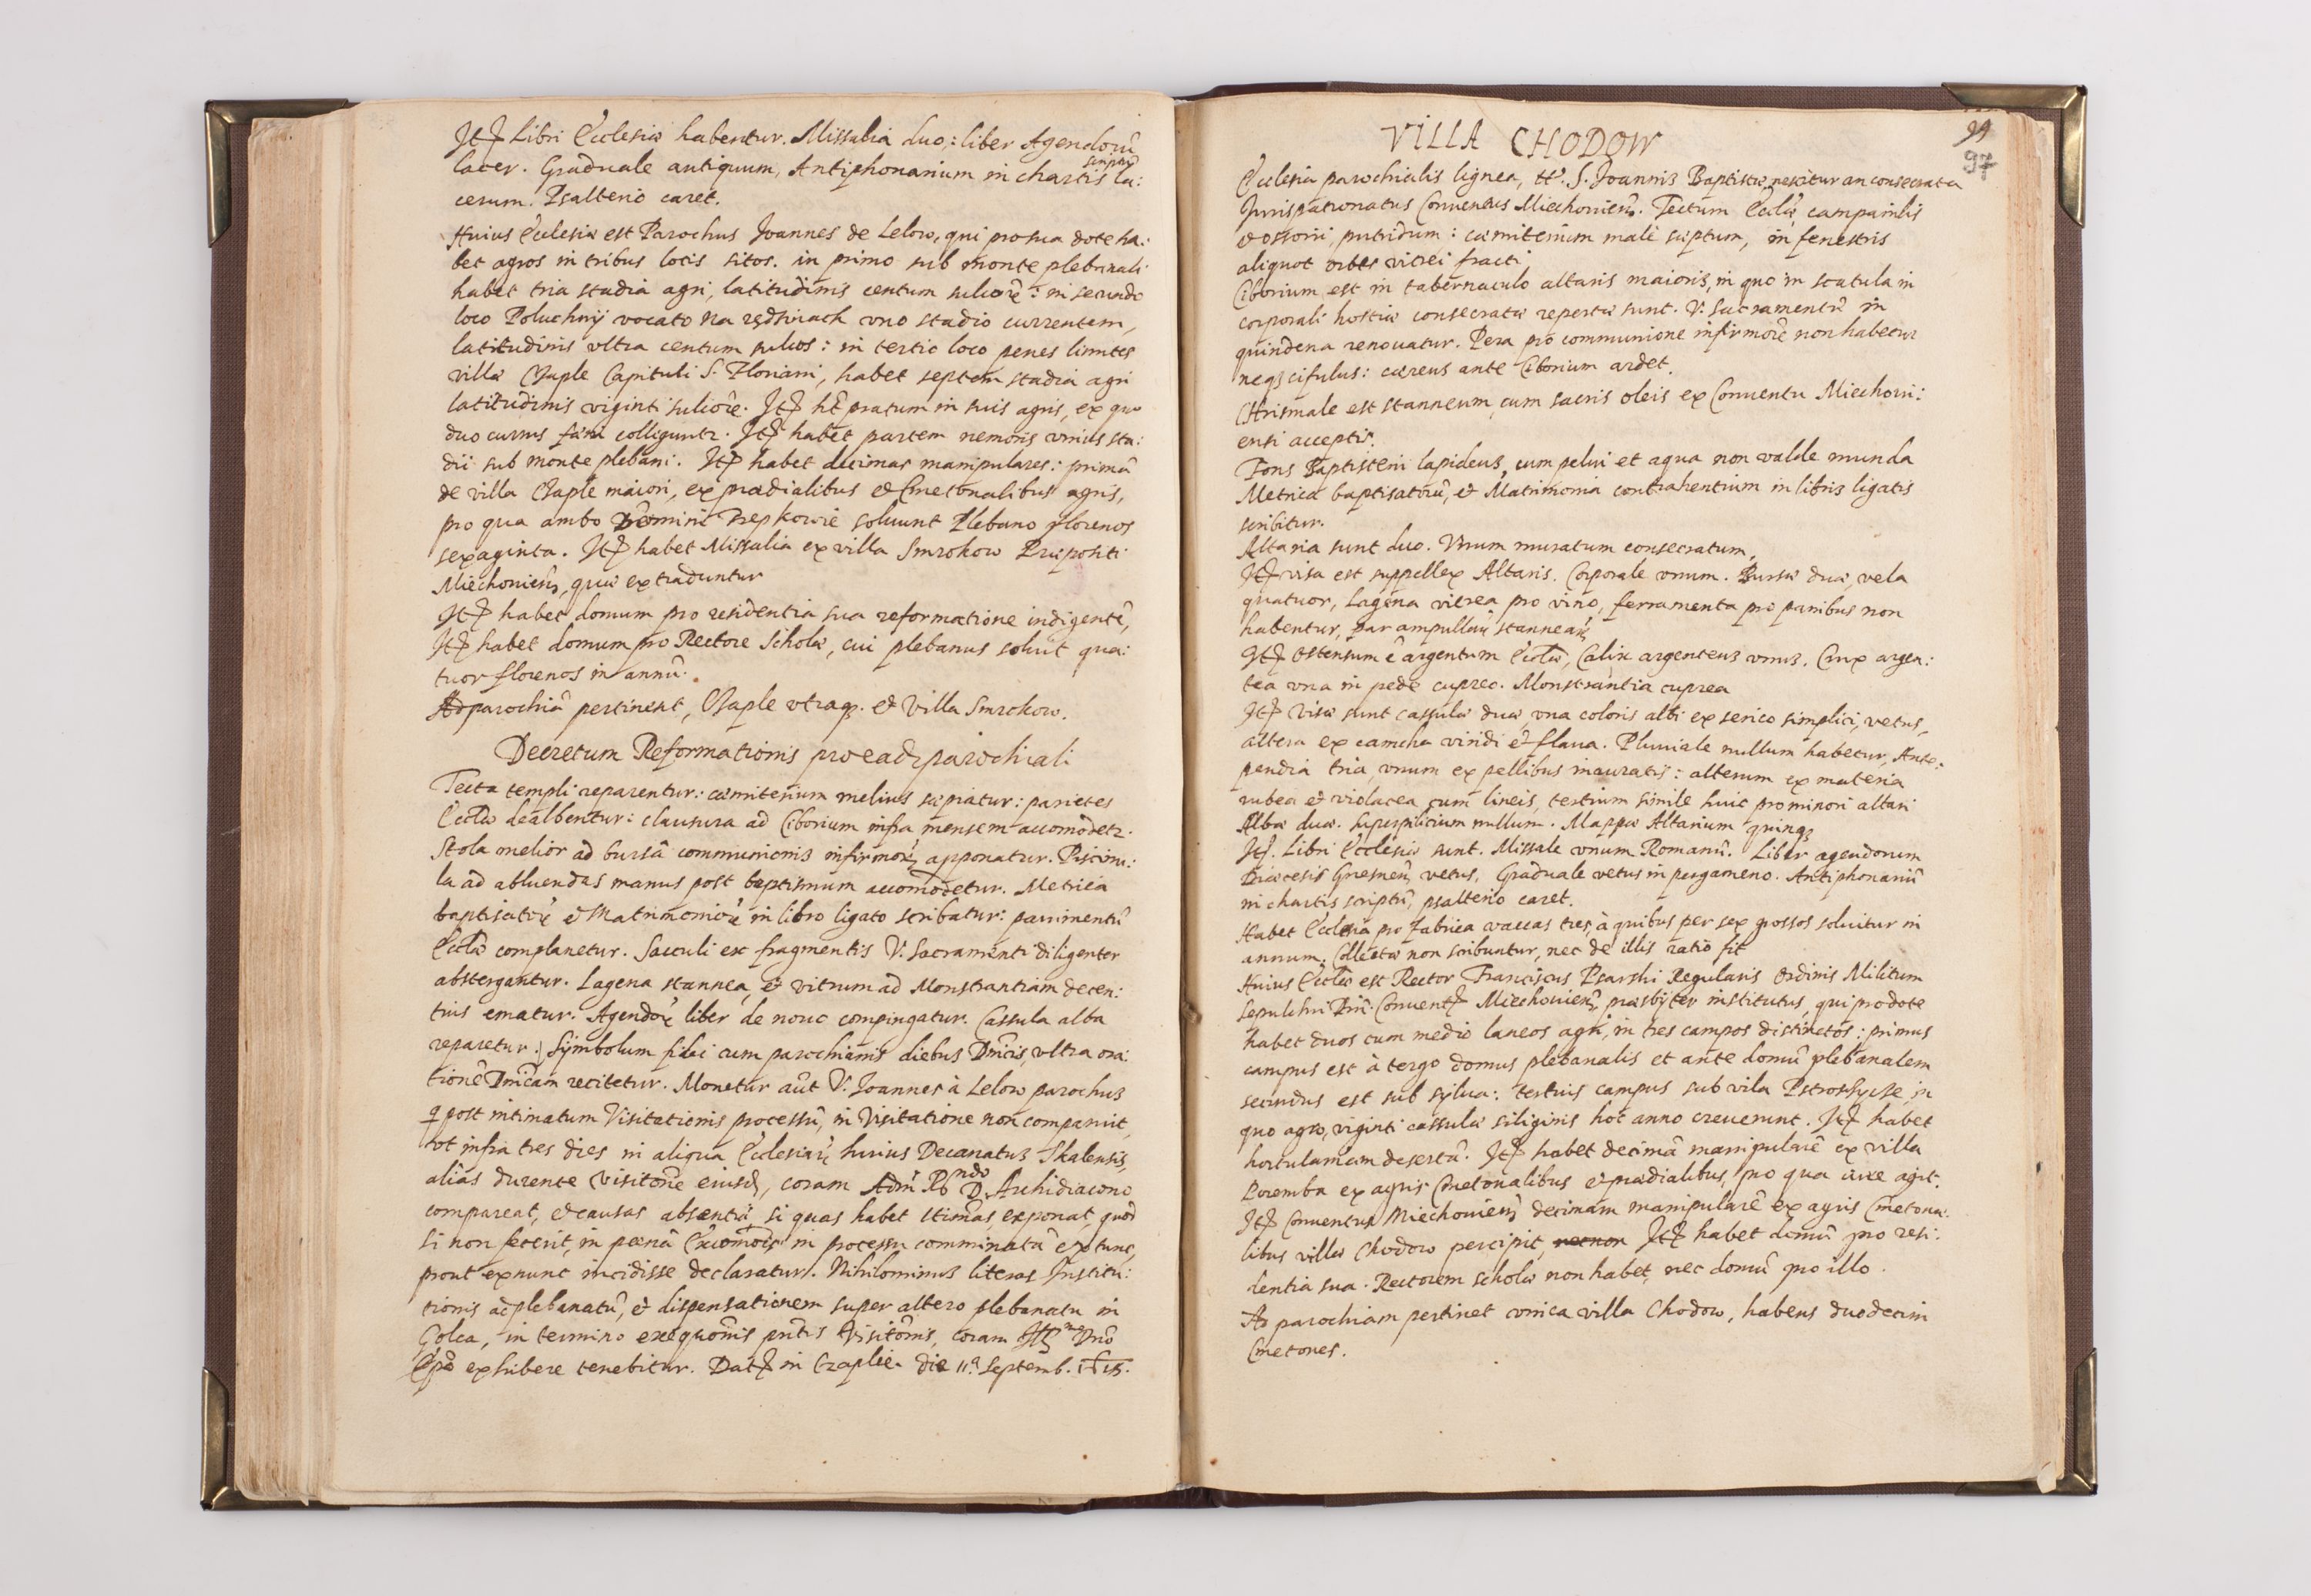 Itē Libri Ecclesiæ habentur. Missalia duo: liber Agendorū
lacer. Graduale antiquum, Antiphonarium in chartis scriptū la:
cerum. Psalterio caret.
Huius Ecclesiæ est Parochus Joannes de Lelow, qui pro sua dote ha:
bet agros in tribus locis sitos. in primo sub monte plebanali
habet tria stadia agri, latitudinis centum sulcorē: in secundo
loco Poluchnÿ vocato Na rędzinach vno stadio currentem,
latitudinis vltra centum sulcos: in tertio loco penes limites
villæ Czaple Capituli S. Floriani, habet septem stadia agri
latitudinis viginti sulcorē. Itē hēt pratum in suis agris, ex quo
duo currus fæni colliguntr. Itē habet partem nemoris vnius sta:
dii sub monte plebani. Itē habet decimas manipulares: primā
de villa Czaple maiori, ex prædialibus et Cmetonalibus agris,
pro qua ambo Domini soluunt Plebano florenos
sexaginta. Itē habet Missalia ex villa Smrokow Præpositi
Miechouiensis, quæ extraduntur
Itē habet domum pro residentia sua reformatione indigentē,
Itē habet domum pro Rectore Scholæ, cui plebanus soluit qua:
tuor florenos in annū.
Ad parochiā pertinent, Czaple vtraq. et Villa Smrokow.
Decretum Reformationis pro ead parochiali
Tecta templi reparentur: cæmiterium melius sæpiatur: parietes
Ecclæ dealbentur: clausura ad Ciborium infra mensem accomodetr.
Stola melior ad bursā communionis infirmorum apponatur. Piscinu:
la ad abluendas manus post baptismum accomodetur. Metrica
baptisatorum et Matrimoniorum in libro ligato scribatur: pauimentū
Ecclæ complanetur. Sacculi ex fragmentis V. Sacramenti diligenter
abstergantur. Lagena stannea, et vitrum ad Monstrantiam decen:
tius ematur. Agendorum liber de nouo compingatur. Cassula alba
reparetur. Sÿmbolum fidei cum parochianis diebus Dnicis, vltra ora:
tionē Dnicam recitetur. Monetur aūt V. Joannes à Lelow parochus
q post intimatum Visitationis processū, in Visitatione non comparuit,
vt infra tres dies in aliqua Ecclesiarum huius Decanatus Skalensis,
aliâs durante Visitōne eiusd, coram Adm Rndo D. Archidiacono
compareat, et causas absentiæ, si quas habet ltimas, exponat, quod
si non fecerit, in pœnā Excomōis in processu comminatā ex tunc,
prout ex nunc incidisse declaratur. Nihilominus literas Institu:
tionis ad plebanatū, et dispensationem super altero plebanatu in
Golca, in termino exequōnis pntis Visitōnis, coram Illmo Dno
Epo exhibere tenebitur. Datē in Czaple. die 11.a Septemb. 1618.
VILLA CHODOW
99
97
Ecclesia parochialis lignea, tt. S. Joannis Baptistæ, nescitur an consecrata
Jurispatronatus Conuentus Miechouiens. Tectum Ecclæ, campanilis
et ossorii, putridum: cæmiterium malè sæptum, in fenestris
aliquot orbes vitrei fracti
Ciborium est in tabernaculo altaris maioris, in quo in scatula in
corporali hostiæ consecratæ repertæ sunt. V. Sacramentū in
quindena renouatur. Pera pro communione infirmorē non habetur
neq cifulus: cæreus ante Ciborium ardet.
Chrismale est stanneum, cum sacris oleis ex Conuentu Miechoui:
ensi acceptis.
Fons Baptisterii lapideus, cum pelui et aqua non valde munda
Metrica baptisatorū, et Matrimonia contrahentium in libris ligatis
scribitur.
Altaria sunt duo. Vnum muratum consecratum,
Itē visa est suppellex Altaris. Corporale vnum. Bursæ duæ, vela
quatuor, Lagena vitrea pro vino, ferramenta pro panibus non
habentur, par ampullarum stannearum
Itē Ostensum ē argentum Ecclæ, Calix argenteus vnus. Crux argen:
tea vna in pede cupreo. Monstrantia cuprea
Itē Visæ sunt cassulæ duæ, vna coloris albi ex serico simplici, vetus,
altera ex camcha viridi et flaua. Pluuiale nullum habetur, Ante:
pendia tria, vnum ex pellibus inauratis: alterum ex materia
rubea et violacea cum lineis, tertium simile huic pro minori altari
Albæ duæ. superpilicium nullum. Mappæ Altarium quinq
Itē. Libri Ecclesiæ sunt. Missale vnum Romanū. Liber agendorum
Diœcesis Gnesnens vetus. Graduale vetus in pergameno. Antiphonariū
in chartis scriptū, psalterio caret.
Habet Ecclesia pro fabrica vaccas tres, à quibus per sex grossos soluitur in
annum. Collectæ non scribuntur, nec de illis ratio fit
Huius Ecclæ est Rector Franciscus Psarski Regularis Ordinis Militum
Sepulchri Dni. Conuentē Miechouiens, præsbÿter institutus, qui pro dote
habet duos cum medio laneos agri, in tres campos distinctos: primus
campus est à tergo domus plebanalis et ante domū plebanalem
secundus est sub sylua: tertius campus sub vila in
quo agro, viginti cassulæ siliginis hoc anno creuerunt. Itē habet
hortulaniam desertā. Itē habet decimā manipularē ex villa
Poremba ex agris Cmetonalibus et prædialibus, pro qua iure agit.
Itē Conuentus Miechouiens decimam manipularē ex agris Cmetona:
libus villæ Chodow percipit, necnon Itē habet domū pro resi:
dentia sua. Rectorem scholæ non habet, nec domū pro illo.
Ad parochiam pertinet vnica villa Chodow, habens duodecim
Cmetones.